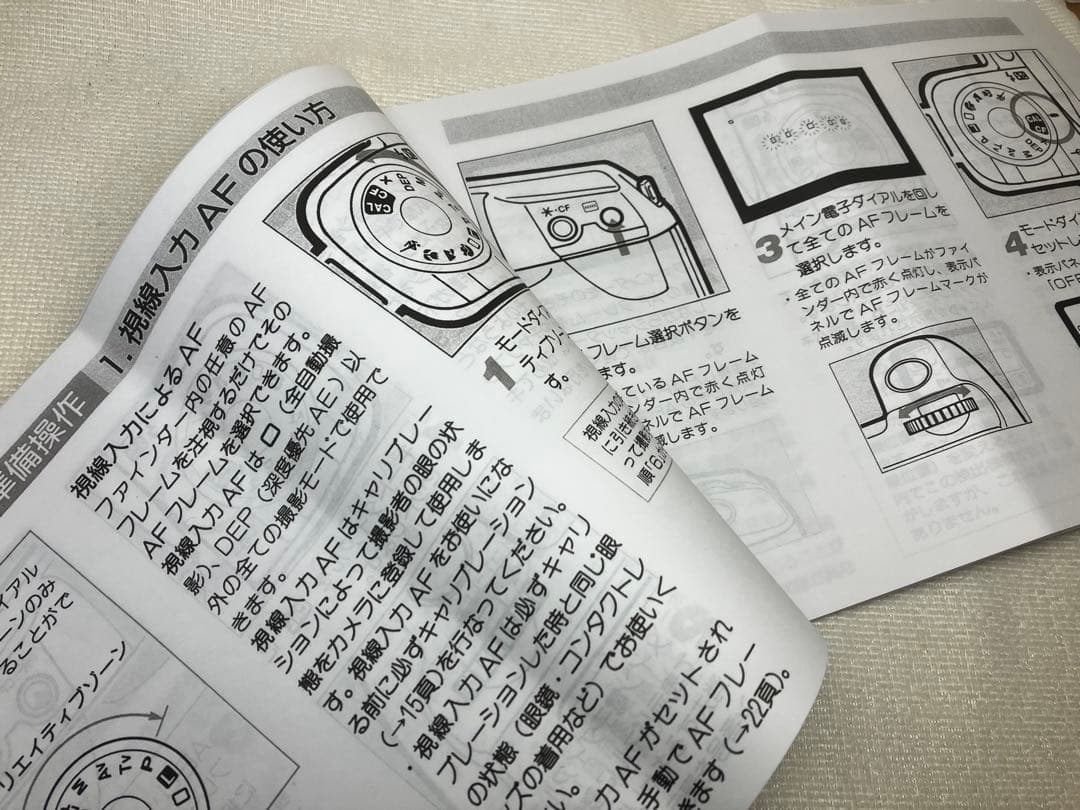 準備操作
1. 視線入力 AF の使い方
視線入力による AF
ファインダー内の任意の AF
フレームを注視するだけでその
AF フレームを選択できます。
視線入力 AF は (全自動撮
影)、DEP (深度優先 AE) 以
外の全ての撮影モードで使用で
きます。
視線入力 AF はキャリブレー
ションによって撮影者の眼の状
態をカメラに登録して使用しま
す。視線入力 AF をお使いにな
る前に必ずキャリブレーション
(→15頁) を行なってください。
・視線入力 AF は必ずキャリ
ブレーションした時と同じ眼
の状態 (眼鏡・コンタクトレ
ンズの着用など) でお使いく
さい。
力 AF がセットされ
手動で AF フレー
きます (→22頁)。
CAL
CF
DEP
1 モードダイ
ティブゾ
す。
視線入力の
に引き続
って撮影
順「6」
イアル
ーンのみ
ることがで
リエイティブゾーン
M
AV
TV
P
✻・CF
フレーム選択ボタンを
ます。
ているAFフレーム
ンダー内で赤く点灯
ネルで AF フレーム
滅します。
3 メイン電子ダイアルを回し
て全ての AF フレームを
選択します。
・全ての AF フレームがファイ
ンダー内で赤く点灯し、表示パ
ネルで AF フレームマークが
点滅します。
CAL
CF
DEP
M
AV
TV
P
4 モードダイ
セットし
・表示パネ
「OFF